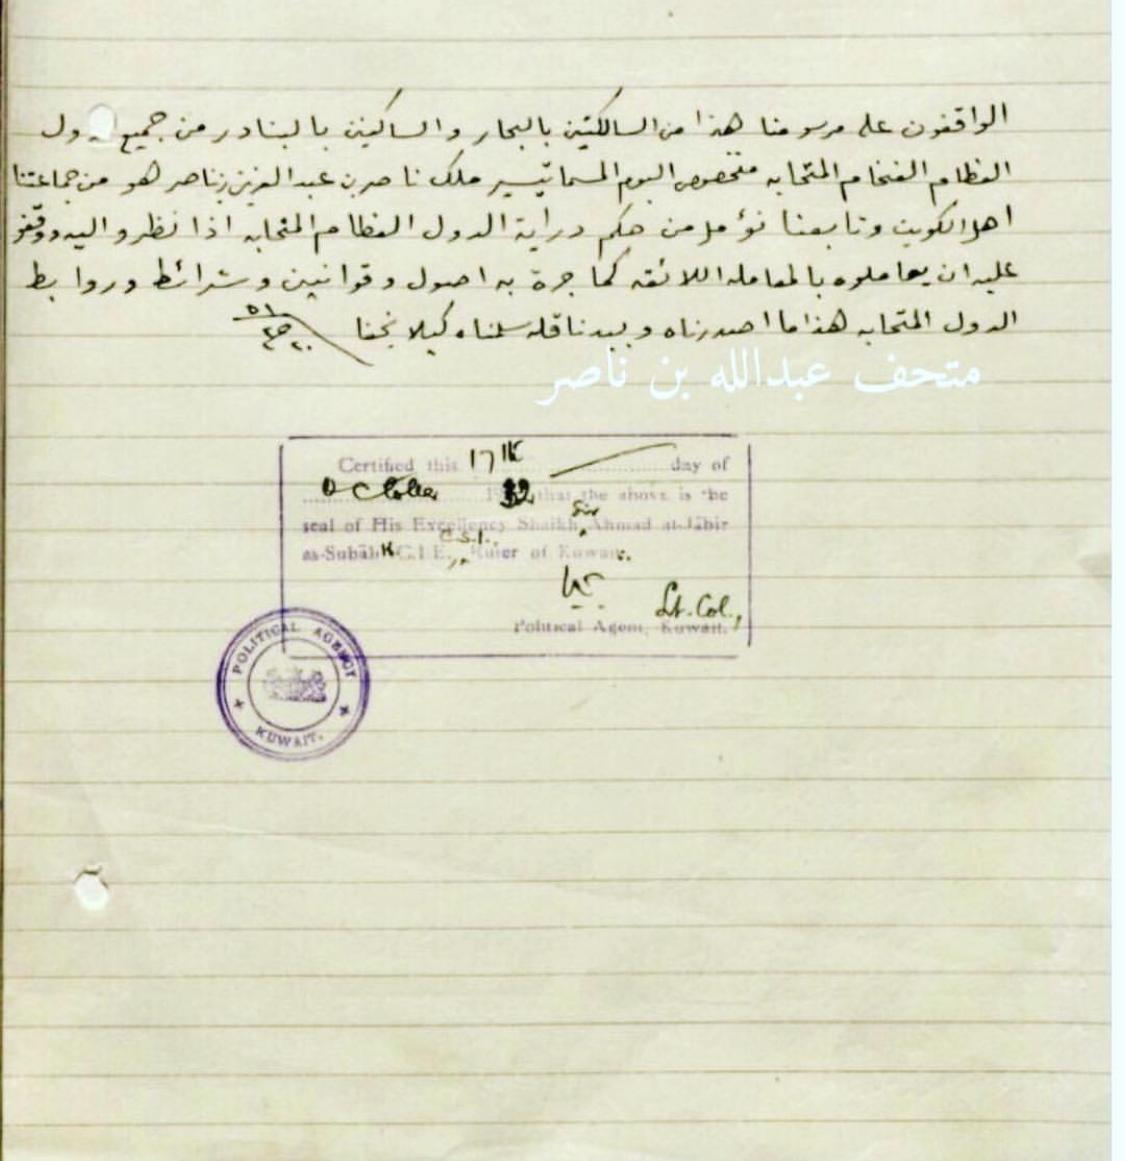 الواقفون على مرسومنا هذا من السالكين بالبحار والساكنين بالبنادر من جميع
العظام الفخام المتحابه بخصوص البوم المسما تيسير ملك ناصر بن عبد العزيز بن ناصر هو من جماعتنا
اهل الكويت وتابعنا نؤمل من حكم دراية الدول العظام المتحابه اذا نظروا اليه ووقفو
عليه ان يعاملوه بالمعامله اللائقه كما جرة به اصول وقوانين وشرائط وروابط
الدول المتحابه هذا ما اصدرناه وبيد ناقله سلمناه كيلا نخفا
متحف عبدالله بن ناصر
Certified this 17th day of
October 1932 that the above is the
seal of His Excellency Shaikh Sir Ahmad al-Jābir
as-Subāh K.C.I.E., C.S.I., Ruler of Kuwait.
Lt. Col.,
Political Agent, Kuwait.
POLITICAL AGENCY
KUWAIT.